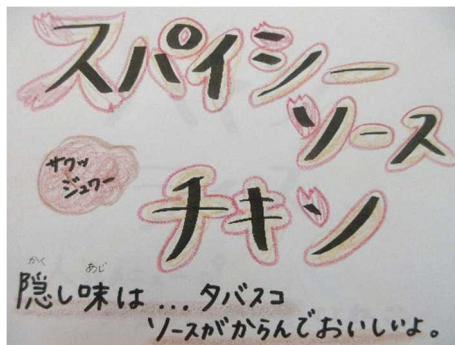 スパイシー
ソース
チキン
サクッ
ジュワー
かく あじ
隠し味は...タバスコ
ソースがからんでおいしいよ。